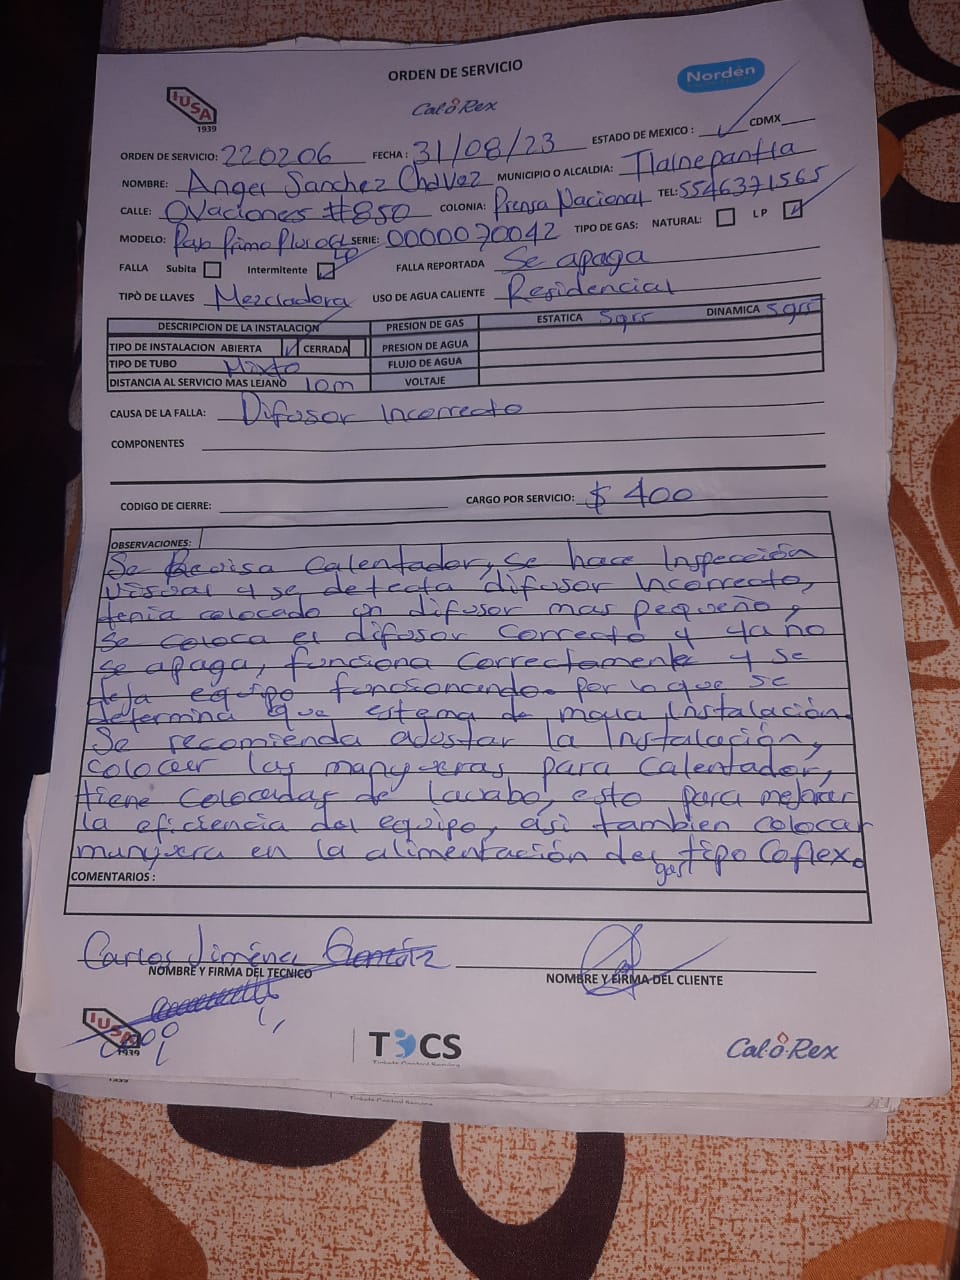 ORDEN DE SERVICIO
IUSA 1939
Cal-o-Rex
Nordén
ORDEN DE SERVICIO: 220206 FECHA: 31/08/23 ESTADO DE MEXICO: ✓ CDMX
NOMBRE: Angel Sanchez Chavez MUNICIPIO O ALCALDIA: Tlalnepantla
CALLE: Ovaciones #850 COLONIA: Prensa Nacional TEL: 5546371565
MODELO: Paso Primo Plus LP SERIE: 0000070042 TIPO DE GAS: NATURAL: LP ✓
FALLA Subita Intermitente ✓ FALLA REPORTADA Se apaga
TIPÒ DE LLAVES Mezcladora USO DE AGUA CALIENTE Residencial
DESCRIPCION DE LA INSTALACION PRESION DE GAS ESTATICA 5grs DINAMICA 5grs
TIPO DE INSTALACION ABIERTA ✓ CERRADA PRESION DE AGUA
TIPO DE TUBO Mixto FLUJO DE AGUA
DISTANCIA AL SERVICIO MAS LEJANO 10m VOLTAJE
CAUSA DE LA FALLA: Difusor Incorrecto
COMPONENTES
CODIGO DE CIERRE: CARGO POR SERVICIO: $ 400
OBSERVACIONES:
Se Revisa Calentador, se hace Inspección
visual y se detecta difusor Incorrecto,
tenia colocado un difusor mas pequeño,
se coloca el difusor correcto y ya no
se apaga, funciona correctamente y se
deja equipo funcionando. por lo que se
determina que es tema de mala Instalación.
Se recomienda ajustar la Instalación,
colocar las mangueras para calentador,
tiene colocadas de lavabo, esto para mejorar
la eficiencia del equipo, asi tambien colocar
manguera en la alimentación de gas tipo Coflex.
COMENTARIOS :
Carlos Jiménez
NOMBRE Y FIRMA DEL TECNICO NOMBRE Y FIRMA DEL CLIENTE
IUSA 1939
TCS
Tickets Control Service
Cal-o-Rex
1939
Tickets Control Service